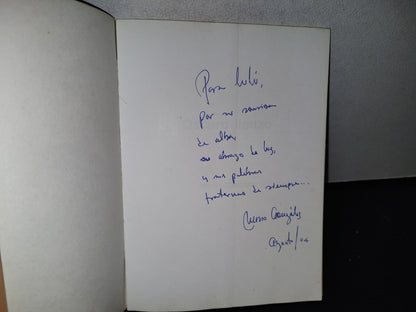 Para Lulú,
por su sonrisa
de alba,
su abrazo de luz,
y sus palabras
fraternas de siempre...
González
Agosto/